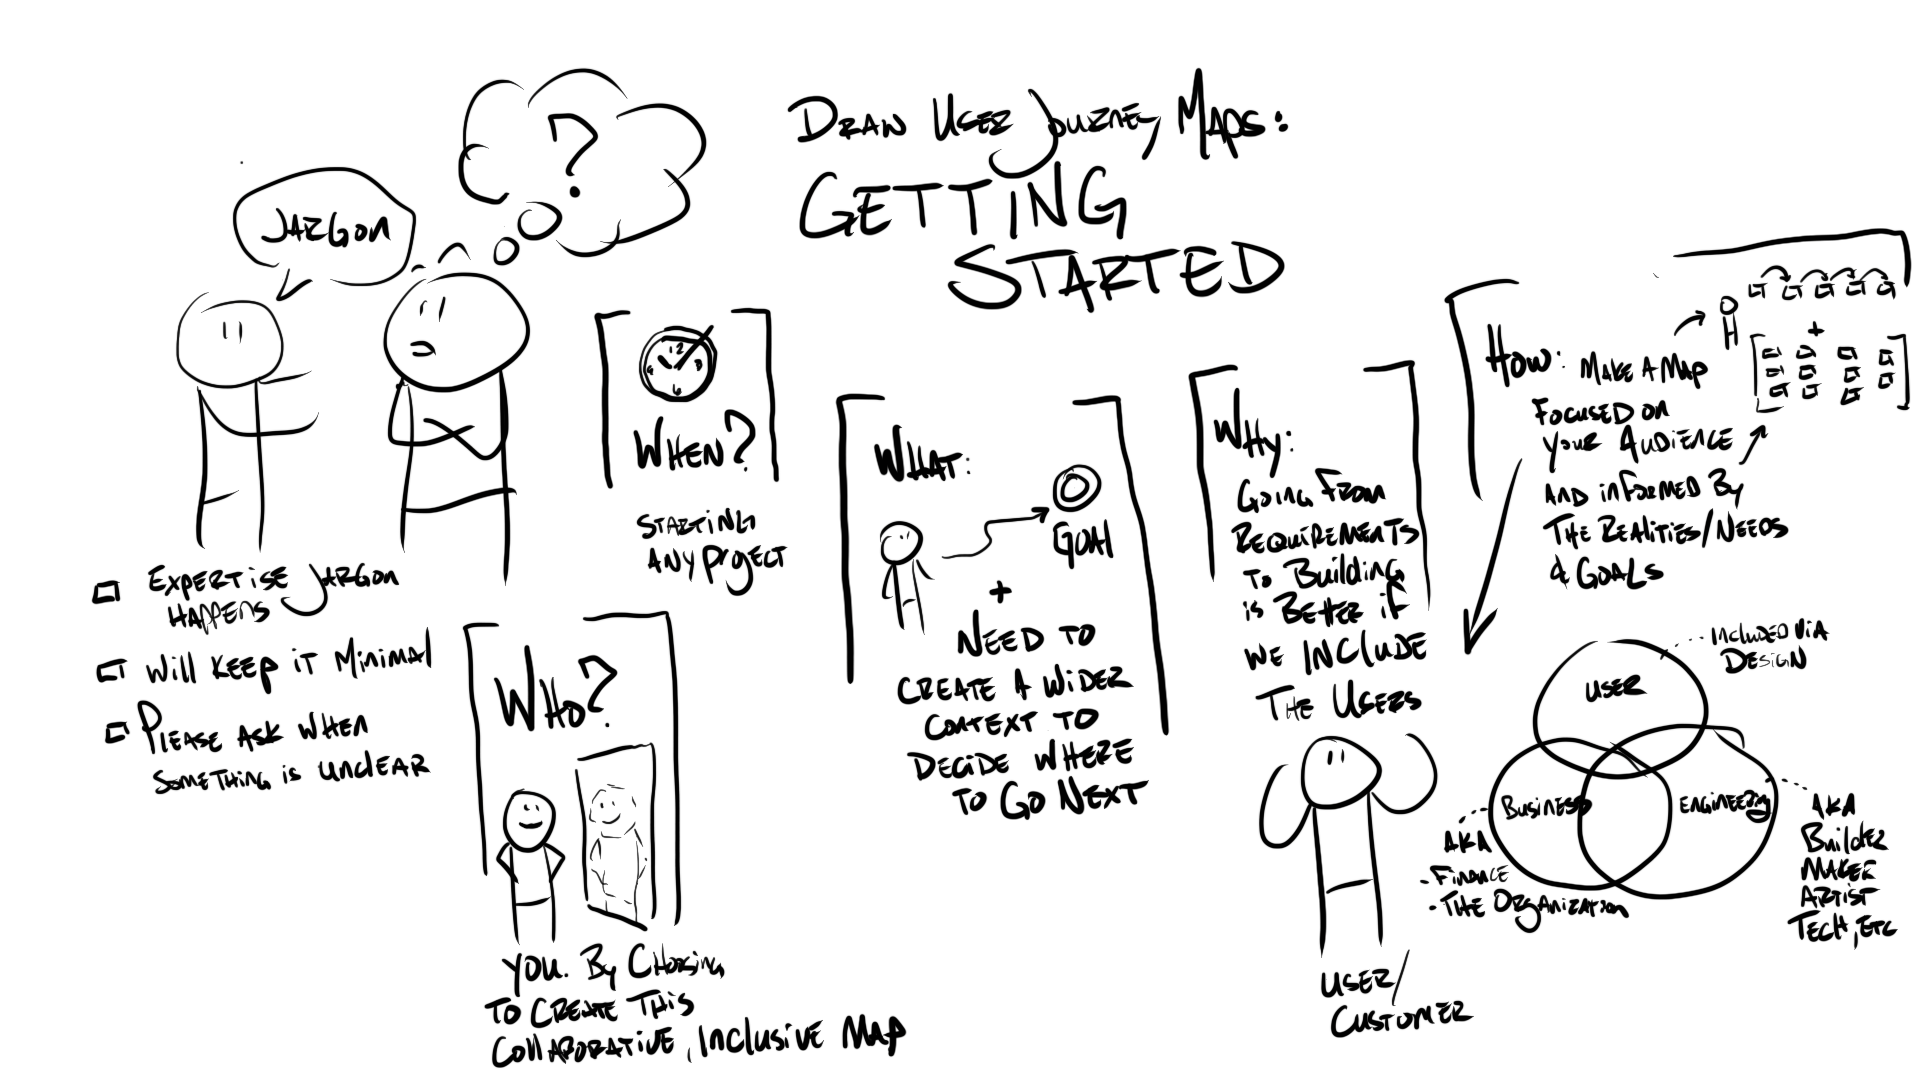 DRAW USER JOURNEY MAPS:
GETTING
STARTED
JARGON
?
EXPERTISE JARGON
HAPPENS
WILL KEEP IT MINIMAL
PLEASE ASK WHEN
SOMETHING IS UNCLEAR
12
3
6
9
WHEN?
STARTING
ANY PROJECT
WHO?
YOU. BY CHOOSING
TO CREATE THIS
COLLABORATIVE, INCLUSIVE MAP
WHAT:
GOAL
+
NEED TO
CREATE A WIDER
CONTEXT TO
DECIDE WHERE
TO GO NEXT
WHY:
GOING FROM
REQUIREMENTS
TO BUILDING
IS BETTER IF
WE INCLUDE
THE USERS
USER/
CUSTOMER
HOW: MAKE A MAP
FOCUSED ON
YOUR AUDIENCE
AND INFORMED BY
THE REALITIES/NEEDS
& GOALS
+
INCLUDED VIA
DESIGN
USER
BUSINESS
ENGINEERING
AKA
- FINANCE
- THE ORGANIZATION
AKA
BUILDER
MAKER
ARTIST
TECH, ETC